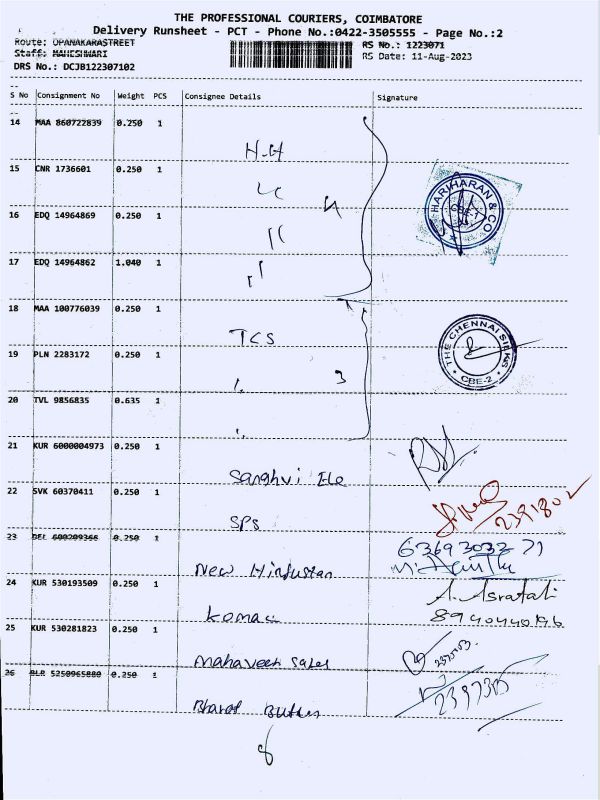 THE PROFESSIONAL COURIERS, COIMBATORE
Delivery Runsheet - PCT - Phone No.:0422-3505555 - Page No.:2
Route: OPANAKARASTREET RS No.: 1223071
Staff: MAHESHWARI RS Date: 11-Aug-2023
DRS No.: DCJB122307102
S No Consignment No Weight PCS Consignee Details Signature
14 MAA 860722839 0.250 1
H-H
15 CNR 1736601 0.250 1
HARIHARAN & CO
CBE-1
16 EDQ 14964869 0.250 1
4
17 EDQ 14964862 1.040 1
18 MAA 100776039 0.250 1
TCS
THE CHENNAI SILKS
CBE-2
19 PLN 2283172 0.250 1
3
20 TVL 9856835 0.635 1
21 KUR 6000004973 0.250 1
Sanghvi Ele
22 SVK 60370411 0.250 1
SPS
2391802
23 DEL 600209366 0.250 1
New Hindustan
6369303271
24 KUR 530193509 0.250 1
Komac
A. Asrafali
8940440196
25 KUR 530281823 0.250 1
Mahaveer Sales
26 BLR 5250965880 0.250 1
Bharat